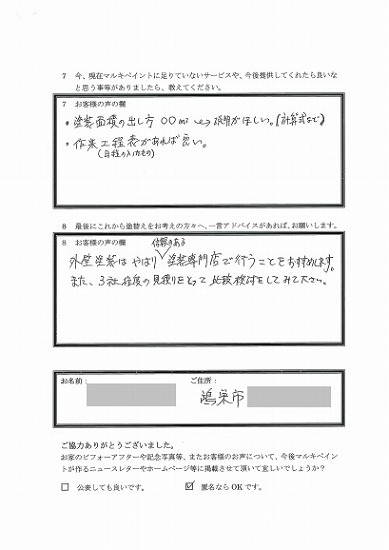 7 今、現在マルキペイントに足りていないサービスや、今後提供してくれたら良いな
と思う事等がありましたら、教えてください。
7 お客様の声の欄
・塗装面積の出し方 〇〇m² 説明がほしい。(計算式など)
・作業工程表があれば良い。
(日程の入ったもの)
8 最後にこれから塗替えをお考えの方々へ、一言アドバイスがあれば、お願いします。
8 お客様の声の欄
信頼のある
外壁塗装は やはり 塗装専門店で行うことをお勧めします。
また、3社程度の見積りをとって 比較検討をしてみて下さい。
お名前:
ご住所:
鴻巣市
ご協力ありがとうございました。
お家のビフォーアフターや記念写真等、またお客様のお声について、今後マルキペイント
が作るニュースレターやホームページ等に掲載させて頂いて宜しいでしょうか?
□ 公表しても良いです。 ☑ 匿名なら OK です。